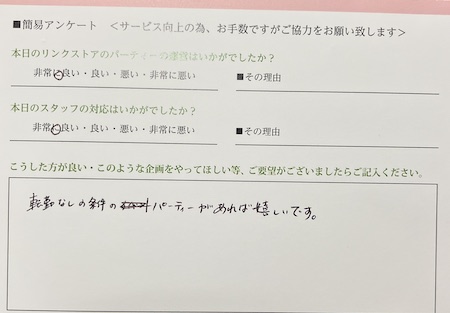 ■簡易アンケート　＜サービス向上の為、お手数ですがご協力をお願い致します＞
本日のリンクストアのパーティーの運営はいかがでしたか？
非常に良い・良い・悪い・非常に悪い　■その理由
本日のスタッフの対応はいかがでしたか？
非常に良い・良い・悪い・非常に悪い　■その理由
こうした方が良い・このような企画をやってほしい等、ご要望がございましたらご記入ください。
転勤なしの条件のパーティーがあれば嬉しいです。